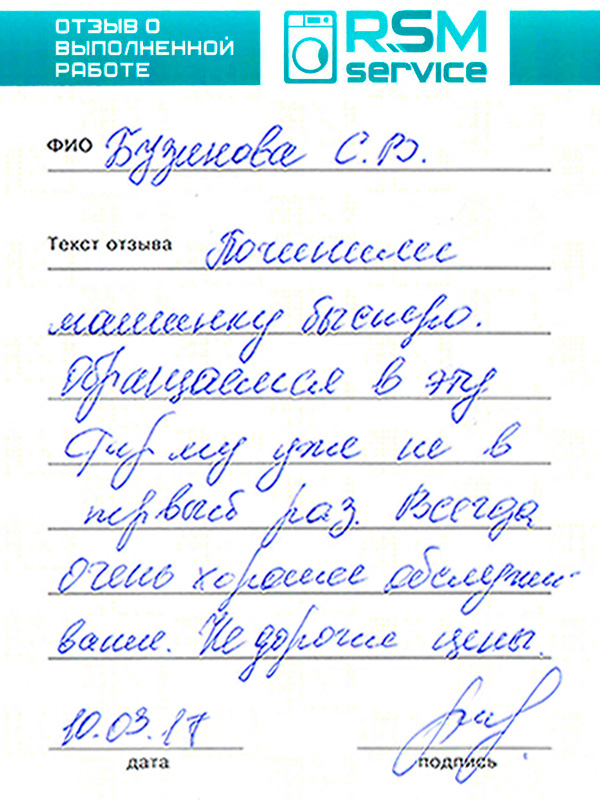 ОТЗЫВ О
ВЫПОЛНЕННОЙ
РАБОТЕ
RSM
service
ФИО Бузинова С.В.
Текст отзыва Починили
машинку быстро.
Обращаемся в эту
Фирму уже не в
первый раз. Всегда
очень хорошее обслужи-
вание. Не дорогие цены.
10.03.17
дата
подпись